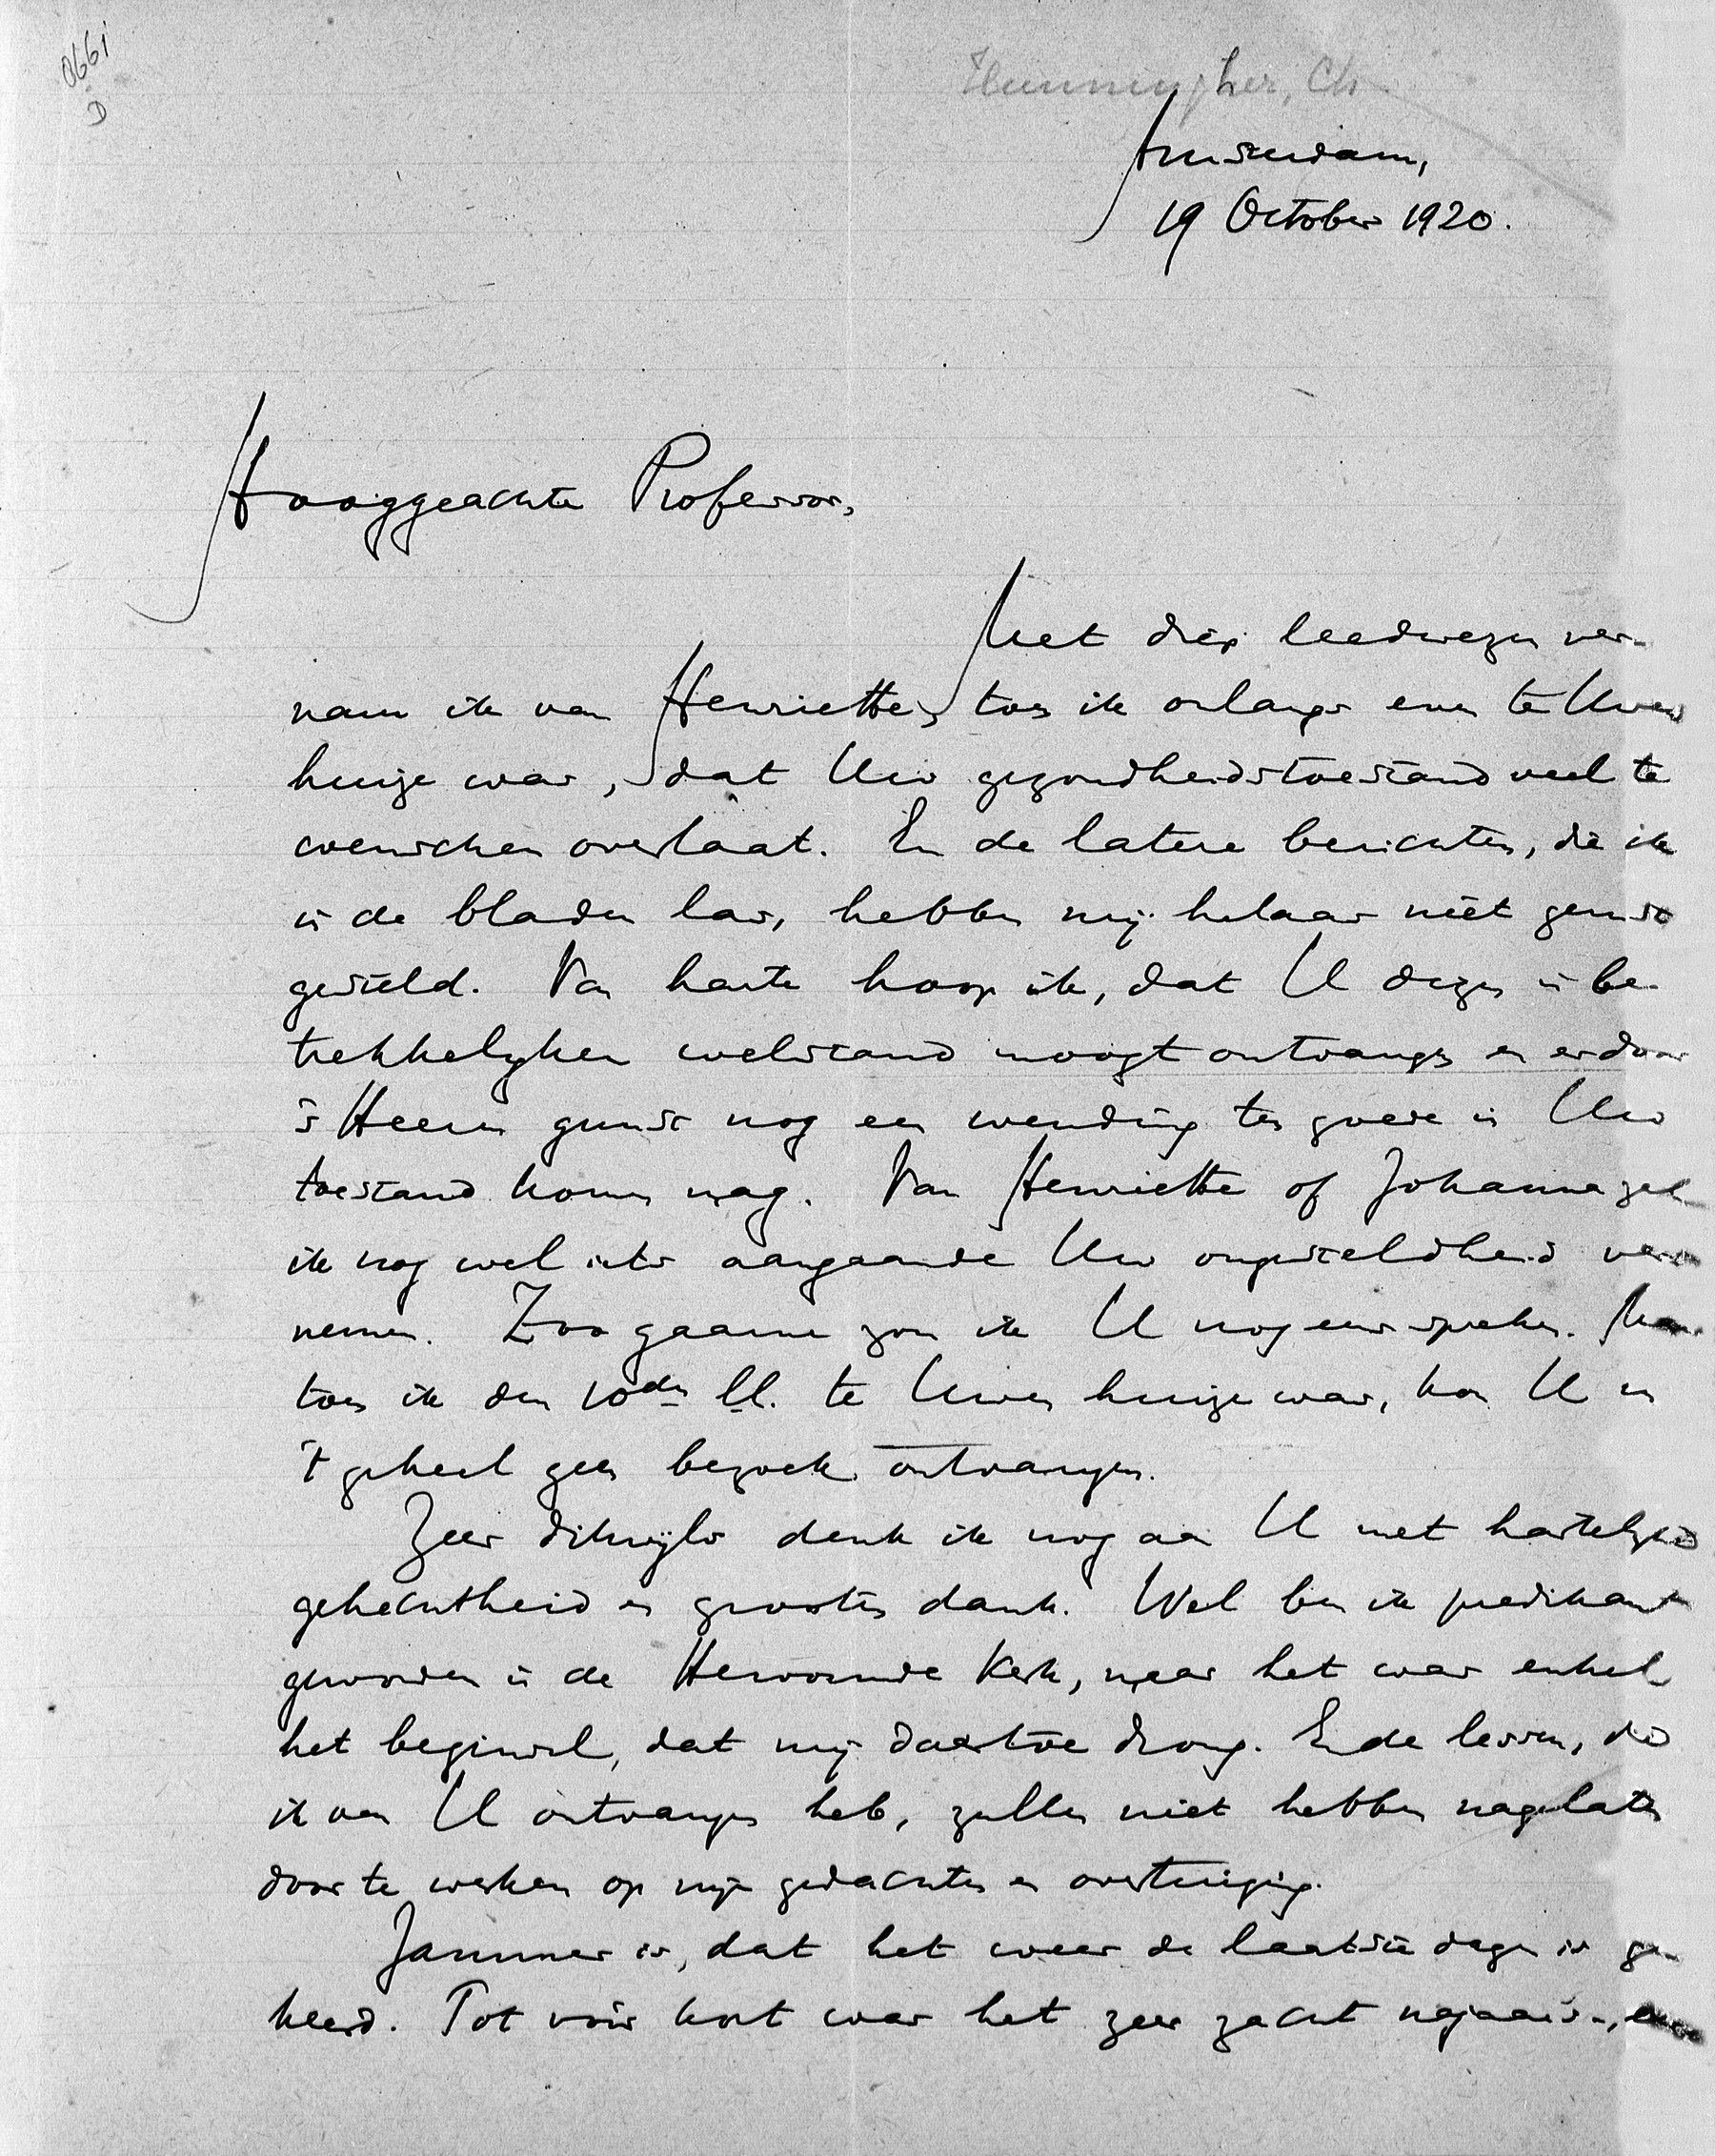 0661
D
Hunningher, Ch
Amsterdam,
19 October 1920.
Hooggeachte Professor,
Met diep leedwezen ver-
nam ik van Henriette, toen ik onlangs even te Uwen
huize was, dat Uw gezondheidstoestand veel te
wenschen overlaat. En de latere berichten, die ik
in de bladen las, hebben mij helaas niet gerust
gesteld. Van harte hoop ik, dat U dezen in be-
trekkelijken welstand moogt ontvangen en er door
's Heeren gunst nog een wending ten goede in Uw
toestand komen mag. Van Henriette of Johanna zal
ik nog wel iets aangaande Uw ongesteldheid ver-
nemen. Zoo gaarne zou ik U nog eens spreken.
toen ik den 10den ll. te Uwen huize was, kon U in
't geheel geen bezoek ontvangen.
Zeer dikwijls denk ik nog aan U met hartelijke
gehechtheid en grooten dank. Wel ben ik predikant
geworden in de Hervormde Kerk, maar het was enkel
het beginsel, dat mij daartoe drong. En de lessen, die
ik van U ontvangen heb, zullen niet hebben nagelaten
door te werken op mijn gedachten en overtuiging.
Jammer is, dat het weer de laatste dagen is ge-
keerd. Tot vóór kort was het zeer zacht najaars-,